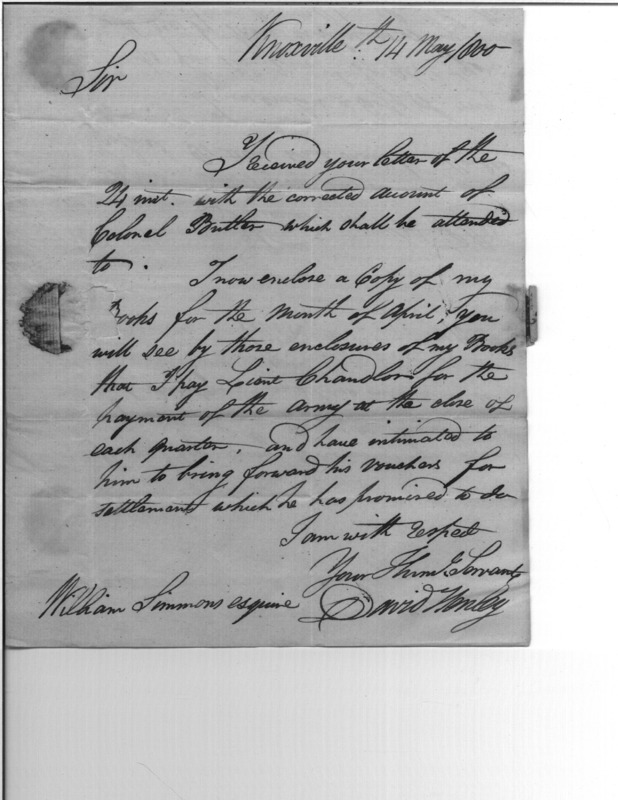 Knoxville th 14 May 1800
Sir
I received your letter of the
24 inst. with the corrected account of
Colonel Butler which shall be attended
to.
I now enclose a Copy of my
Books for the month of April, you
will see by those enclosures of my Books
that I pay Lieut Chandler for the
payment of the army at the close of
each quarter, and have intimated to
him to bring forward his vouchers for
settlement which he has promised to do
I am with respect
Your Hum.e Servant
William Simmons esquire David Henley